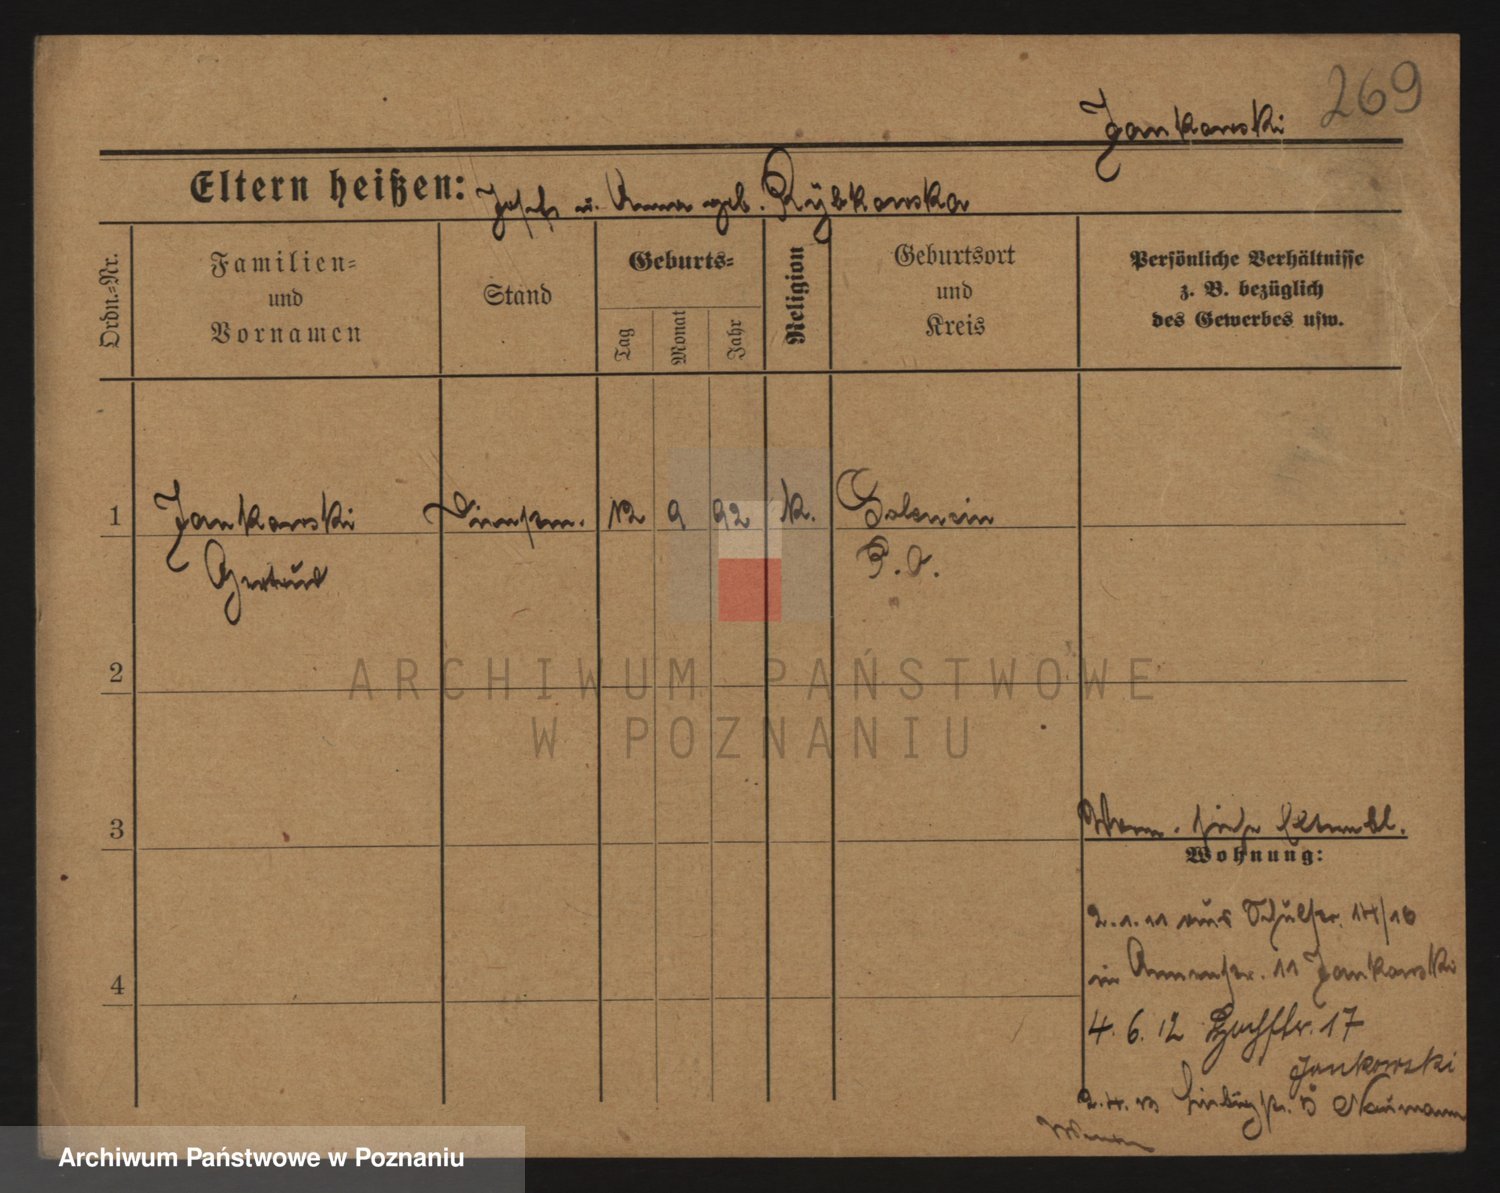 269
Jankowski
Eltern heißen: Josef u. Anna geb. Rybkowska
Ordn.=Nr.
Familien=
und
Vornamen
Stand
Geburts=
Tag
Monat
Jahr
Religion
Geburtsort
und
Kreis
Persönliche Verhältnisse
z. B. bezüglich
des Gewerbes usw.
1 Jankowski 12 9 92 k.
Gertrud P. O.
2
ARCHIWUM PAŃSTWOWE
W POZNANIU
3
siehe
Wohnung:
2.1.11 aus Schulstr. 14/16
in 11 Jankowski
4
4.6.12 17
Jankowski
Naumann
Archiwum Państwowe w Poznaniu